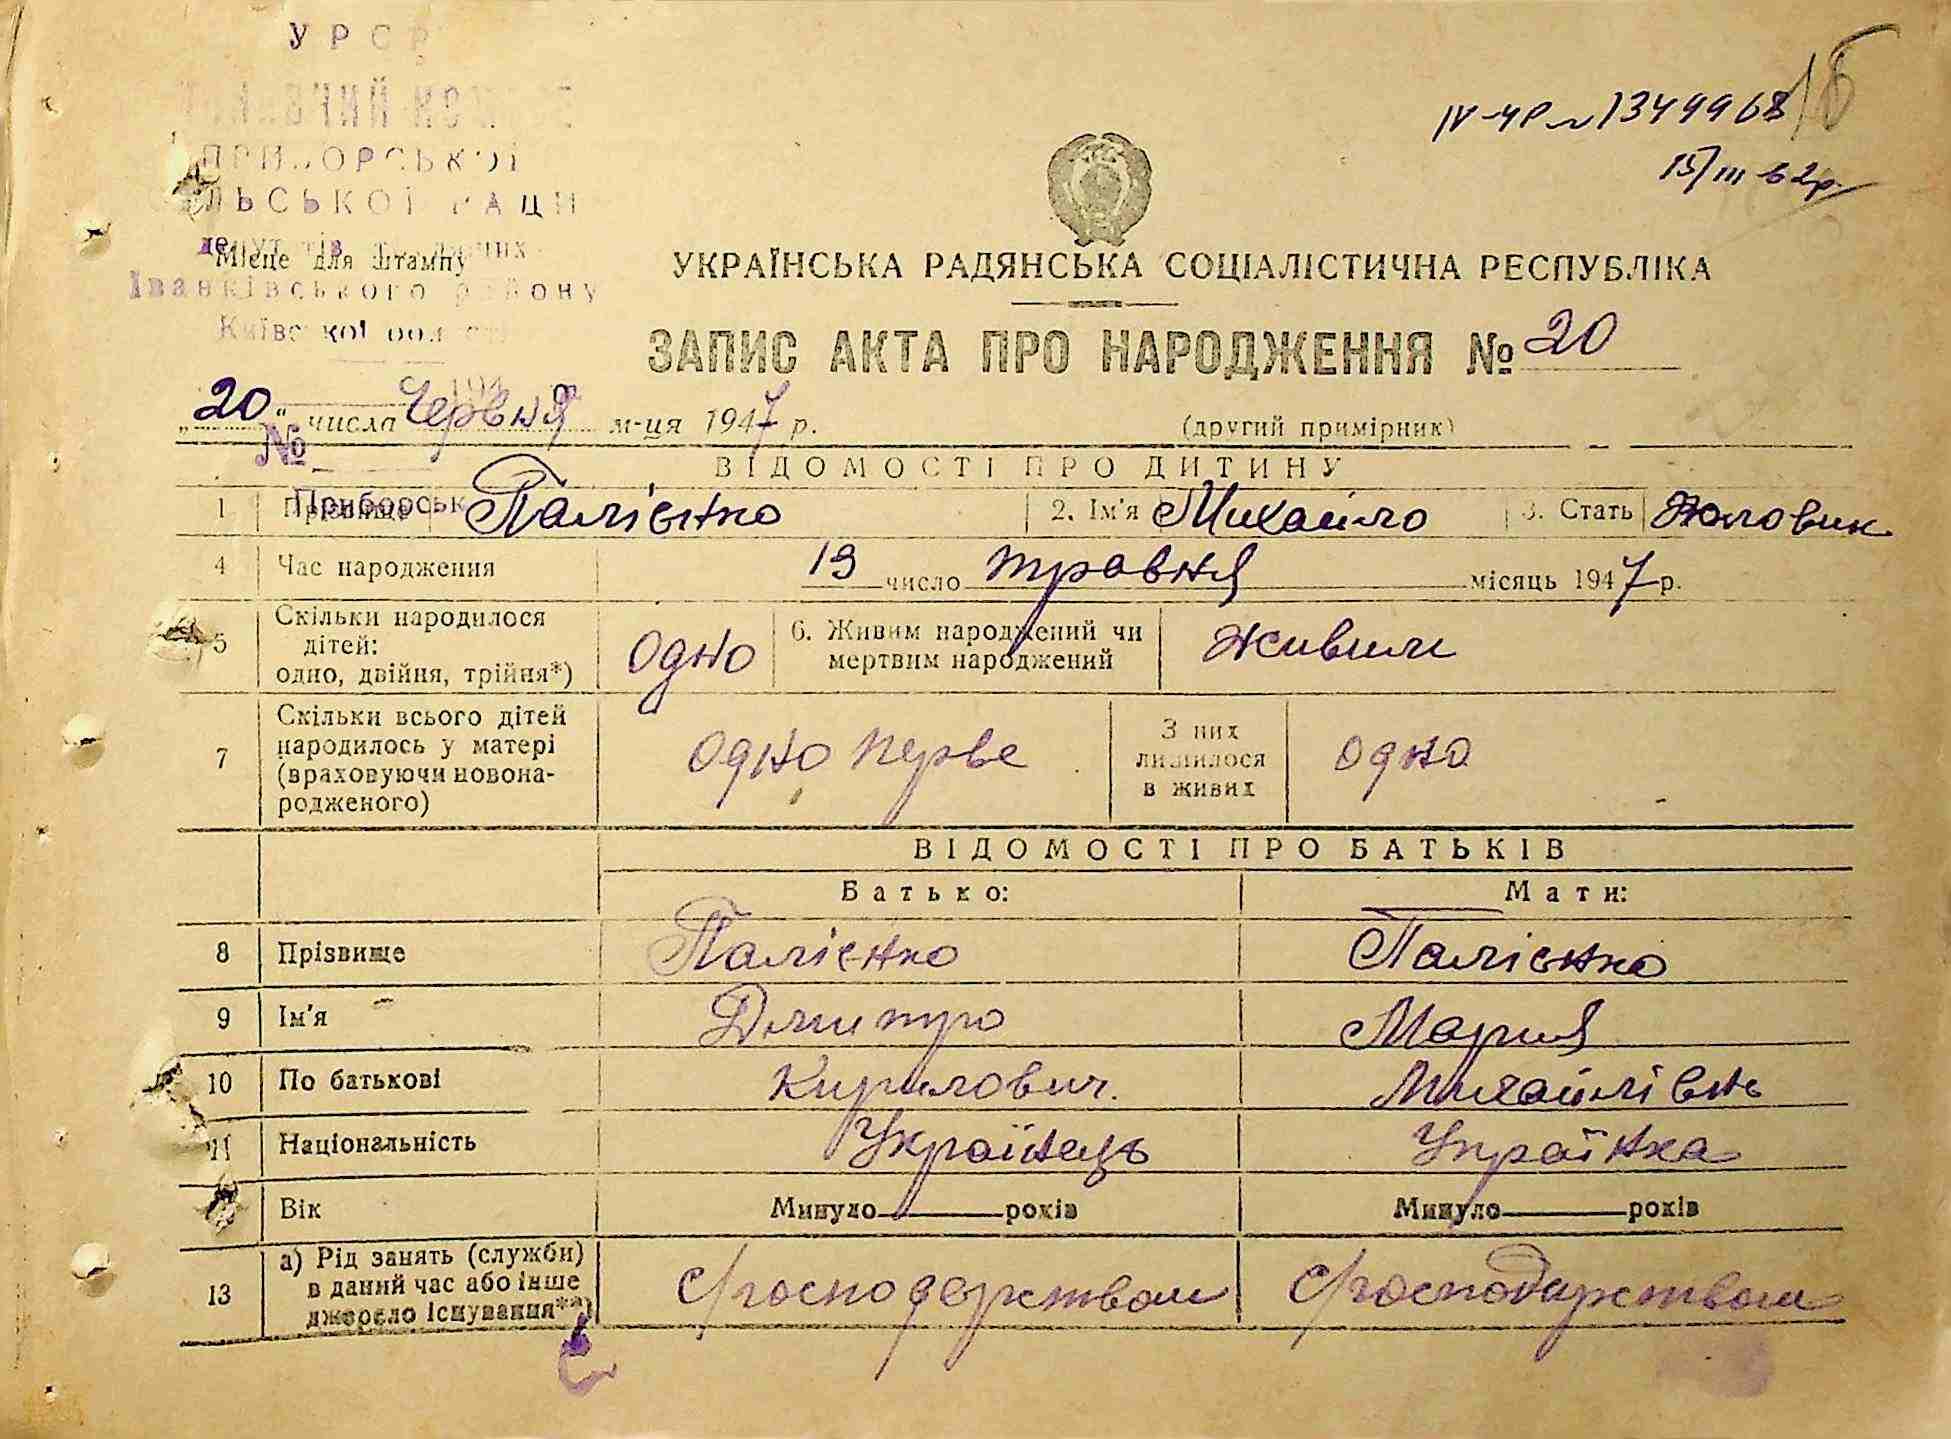 УРСР
ПРИБОРСЬКОЇ
СІЛЬСЬКОЇ РАДИ
депутатів трудящих
Місце для штампу
Іванківського району
Київської області
№
Приборськ
IV-ЧР № 1344968
15/III 62р.
УКРАЇНСЬКА РАДЯНСЬКА СОЦІАЛІСТИЧНА РЕСПУБЛІКА
ЗАПИС АКТА ПРО НАРОДЖЕННЯ № 20
„20“ числа Червня м-ця 1947 р. (другий примірник)
ВІДОМОСТІ ПРО ДИТИНУ
1 Прізвище Палієнко 2. Ім'я Михайло 3. Стать Чоловик
4 Час народження 19 число травня місяць 1947 р.
5 Скільки народилося дітей: одно, двійня, трійня*) Одно 6. Живим народжений чи мертвим народжений живим
7 Скільки всього дітей народилось у матері (враховуючи новонародженого) Одно перве З них лишилося в живих Одно
ВІДОМОСТІ ПРО БАТЬКІВ
Батько: Мати:
8 Прізвище Палієнко Палієнко
9 Ім'я Дмитро Мария
10 По батькові Кирилович. Михайлівнь
11 Національність Українець Українка
Вік Минуло років Минуло років
13 а) Рід занять (служби) в даний час або інше джерело існування**)